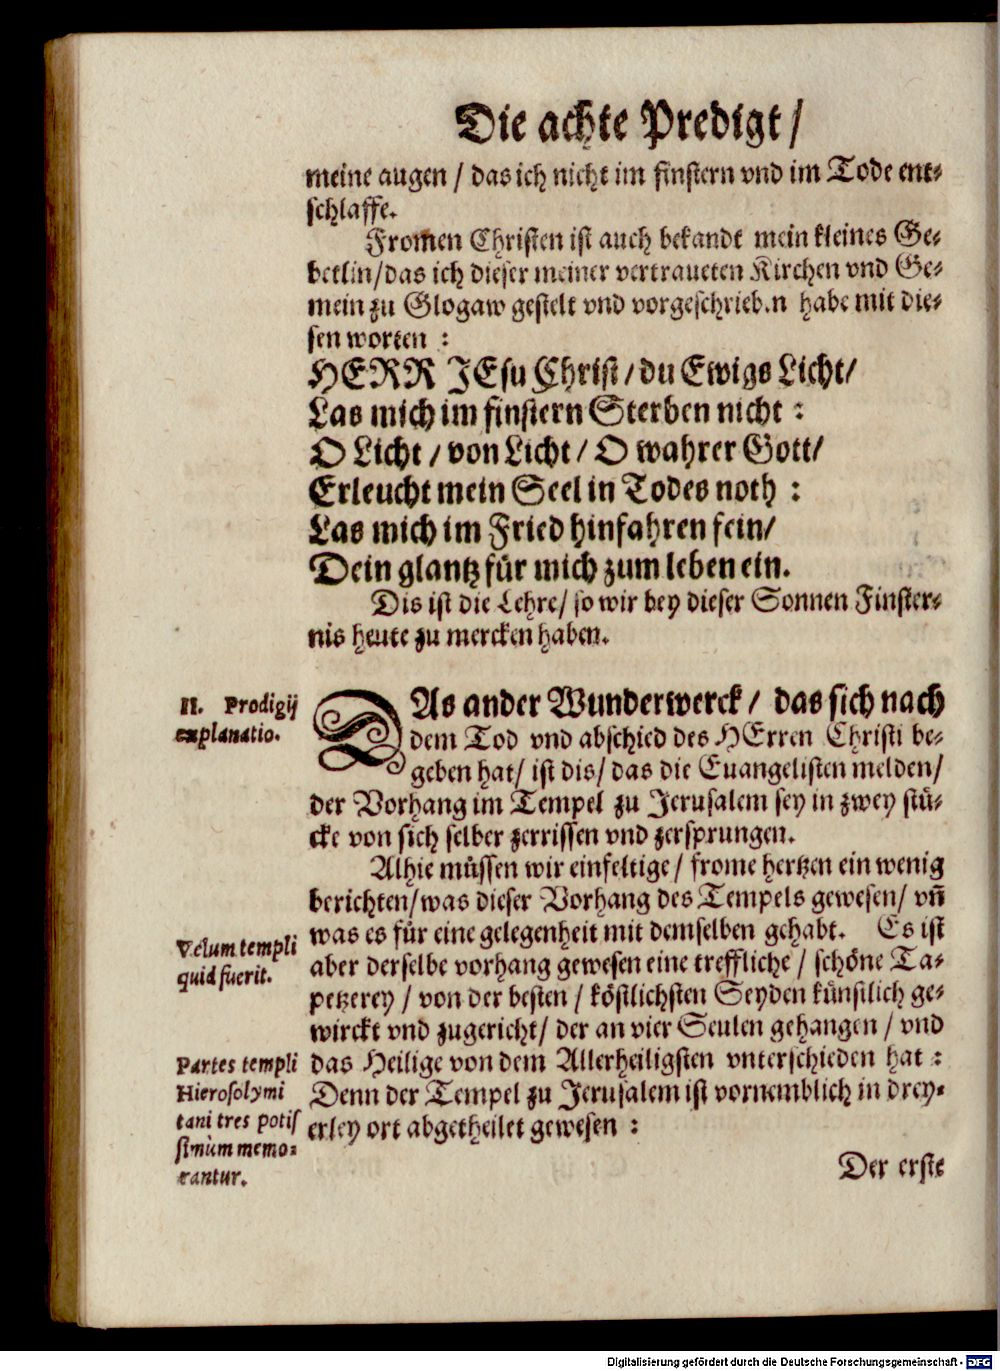 Die achte Predigt /
meine augen / das ich nicht im finstern vnd im Tode ent⸗
schlaffe.
Fromen Christen ist auch bekandt mein kleines Ge⸗
betlin/das ich dieser meiner vertraueten Kirchen vnd Ge⸗
mein zu Glogaw gestelt vnd vorgeschrieb.n habe mit die⸗
sen worten :
HERR JEsu Christ / du Ewigs Licht/
Las mich im finstern Sterben nicht :
O Licht / von Licht / O wahrer Gott/
Erleucht mein Seel in Todes noth :
Las mich im Fried hinfahren fein/
Dein glantz für mich zum leben ein.
Dis ist die Lehre/ so wir bey dieser Sonnen Finster⸗
nis heute zu mercken haben.
II. Prodigij
explanatio.
DAs ander Wunderwerck / das sich nach
dem Tod vnd abschied des HErren Christi be⸗
geben hat/ ist dis/ das die Euangelisten melden/
der Vorhang im Tempel zu Jerusalem sey in zwey stü⸗
cke von sich selber zerrissen vnd zersprungen.
Alhie müssen wir einfeltige / frome hertzen ein wenig
berichten/was dieser Vorhang des Tempels gewesen/ vn̄
was es für eine gelegenheit mit demselben gehabt. Es ist
Velum templi
quid fuerit.
aber derselbe vorhang gewesen eine treffliche / schöne Ta⸗
petzerey / von der besten / köstlichsten Seyden künstlich ge⸗
wirckt vnd zugericht/ der an vier Seulen gehangen / vnd
das Heilige von dem Allerheiligsten vnterschieden hat :
Denn der Tempel zu Jerusalem ist vornemblich in drey⸗
erley ort abgetheilet gewesen :
Partes templi
Hierosolymi
tani tres potis
simùm memo⸗
rantur.
Der erste
Digitalisierung gefördert durch die Deutsche Forschungsgemeinschaft - DFG